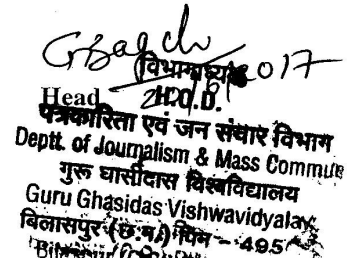 GBagchi
विभागाध्यक्ष 2017
Head H.O.D.
पत्रकारिता एवं जन संचार विभाग
Deptt. of Journalism & Mass Commun
गुरू घासीदास विश्वविद्यालय
Guru Ghasidas Vishwavidyalay
बिलासपुर (छ.ग.) पिन - 495